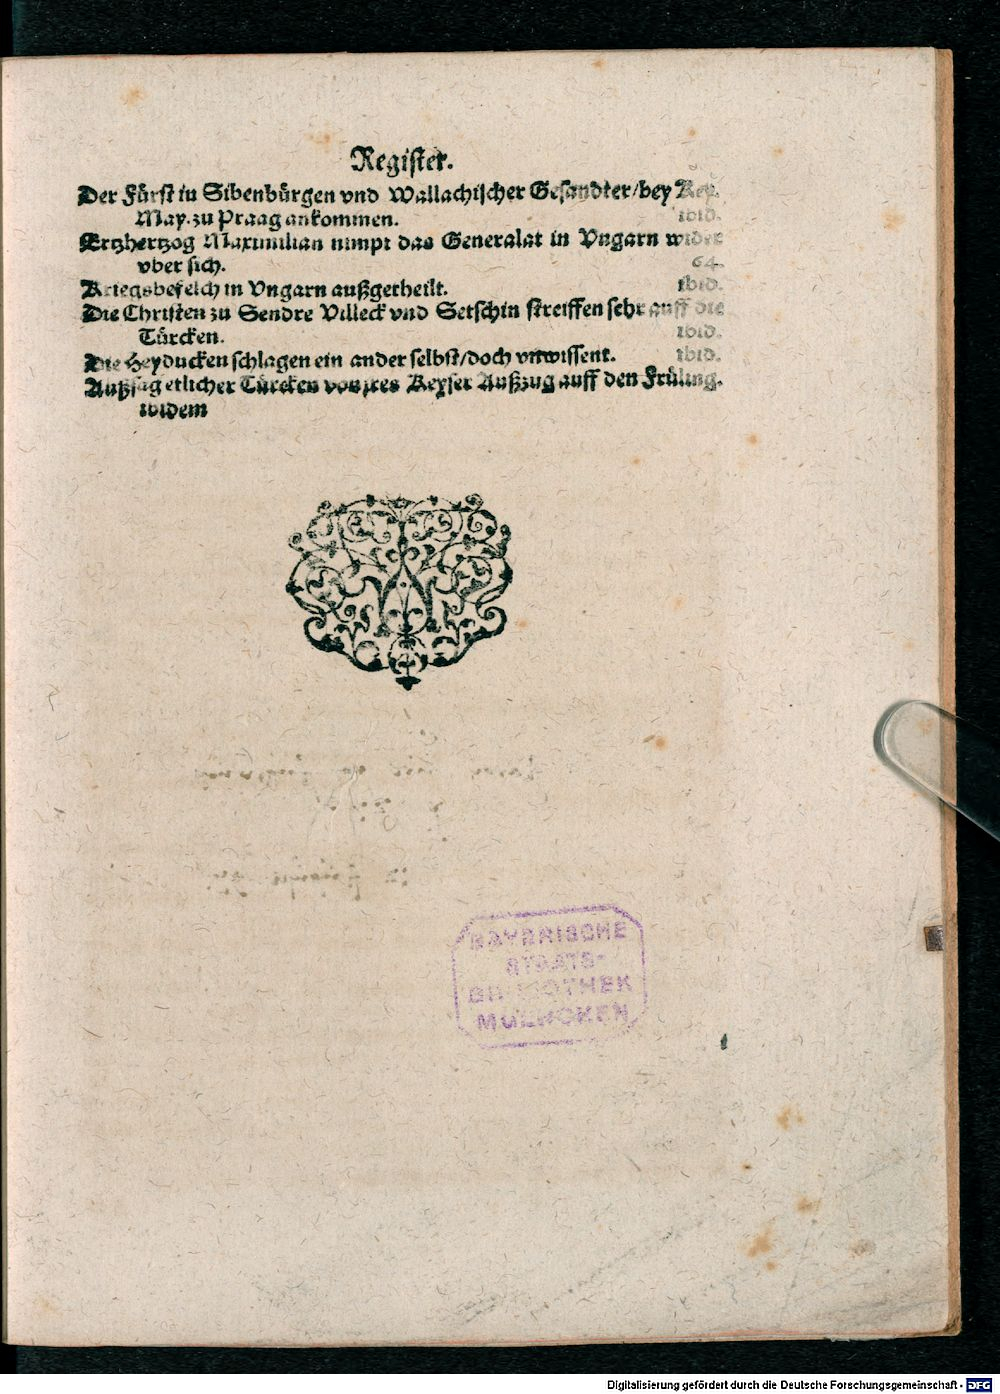 Register.
Der Fürst in Sibenbürgen vnd Wallachischer Gesandter/bey Key.
May. zu Praag ankommen. ibid.
Ertzhertzog Maximilian nimpt das Generalat in Vngarn wider
vber sich. 64.
Kriegsbefelch in Vngarn außgetheilt. ibid.
Die Christen zu Sendre Villeck vnd Setschin streiffen sehr auff die
Türcken. ibid.
Die Heyducken schlagen ein ander selbst/doch vnwissent. ibid.
Außsag etlicher Türcken von jres Keyser Außzug auff den Früling.
ibidem
BAYERISCHE
STAATS-
BIBLIOTHEK
MUENCHEN
Digitalisierung gefördert durch die Deutsche Forschungsgemeinschaft - DFG